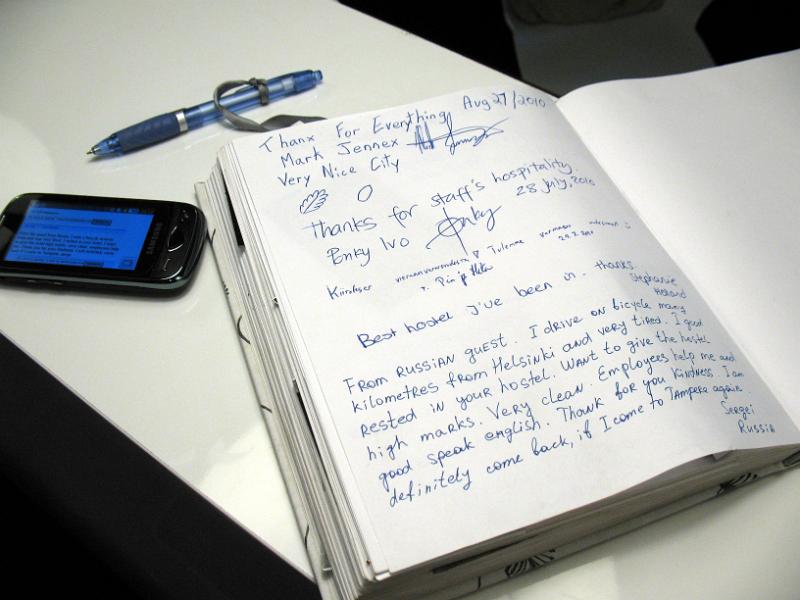 Thanx For Everything Aug 27/2010
Mark Jennex
Very Nice City
Thanks for staff's hospitality.
28 July, 2010
Enky Ivo Enky
Best hostel I've been in. thanks
Stephanie
From RUSSIAN guest. I drive on bicycle many
kilometres from Helsinki and very tired. I good
rested in your hostel. Want to give the hostel
high marks. Very clean. Employees help me and
good speak english. Thank for you kindness. I am
definitely come back, if I come to Tampere again
Sergei
Russia
SAMSUNG